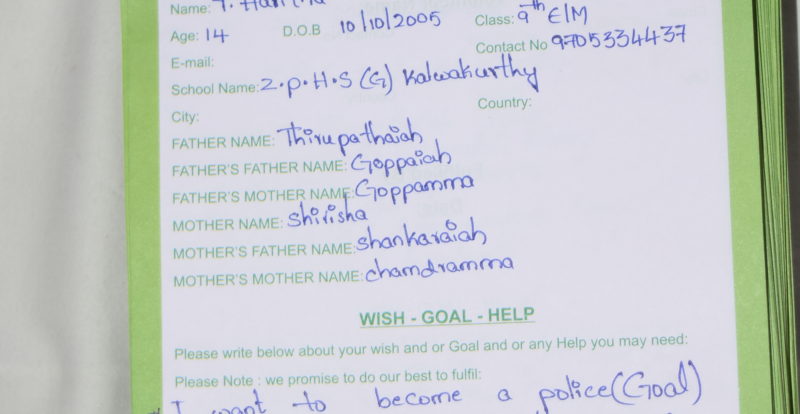 Name: T.
Age: 14 D.O.B 10/10/2005 Class: 9th E/M
Contact No 9705334437
E-mail:
School Name: Z.P.H.S (G) Kalwakurthy
City: Country:
FATHER NAME: Thirupathaiah
FATHER'S FATHER NAME: Goppaiah
FATHER'S MOTHER NAME: Goppamma
MOTHER NAME: Shirisha
MOTHER'S FATHER NAME: Shankaraiah
MOTHER'S MOTHER NAME: chamdramma
WISH - GOAL - HELP
Please write below about your wish and or Goal and or any Help you may need:
Please Note : we promise to do our best to fulfil:
I want to become a police(Goal)